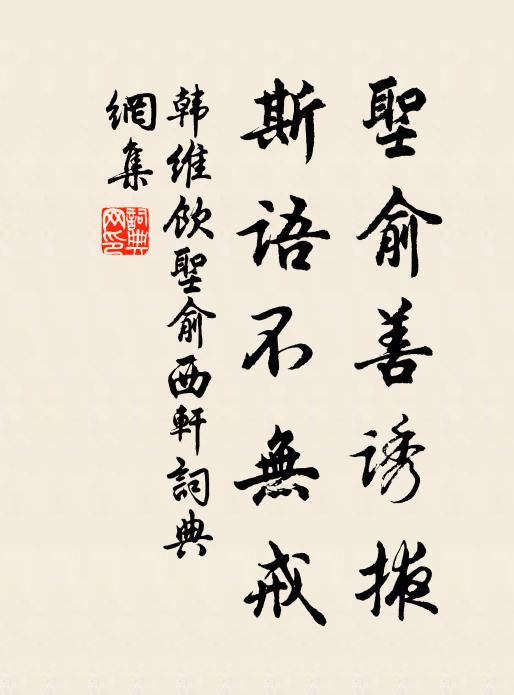 聖俞善誘掖
斯語不無戒
韩維飲聖俞西軒詞典
網集
詞典
网印